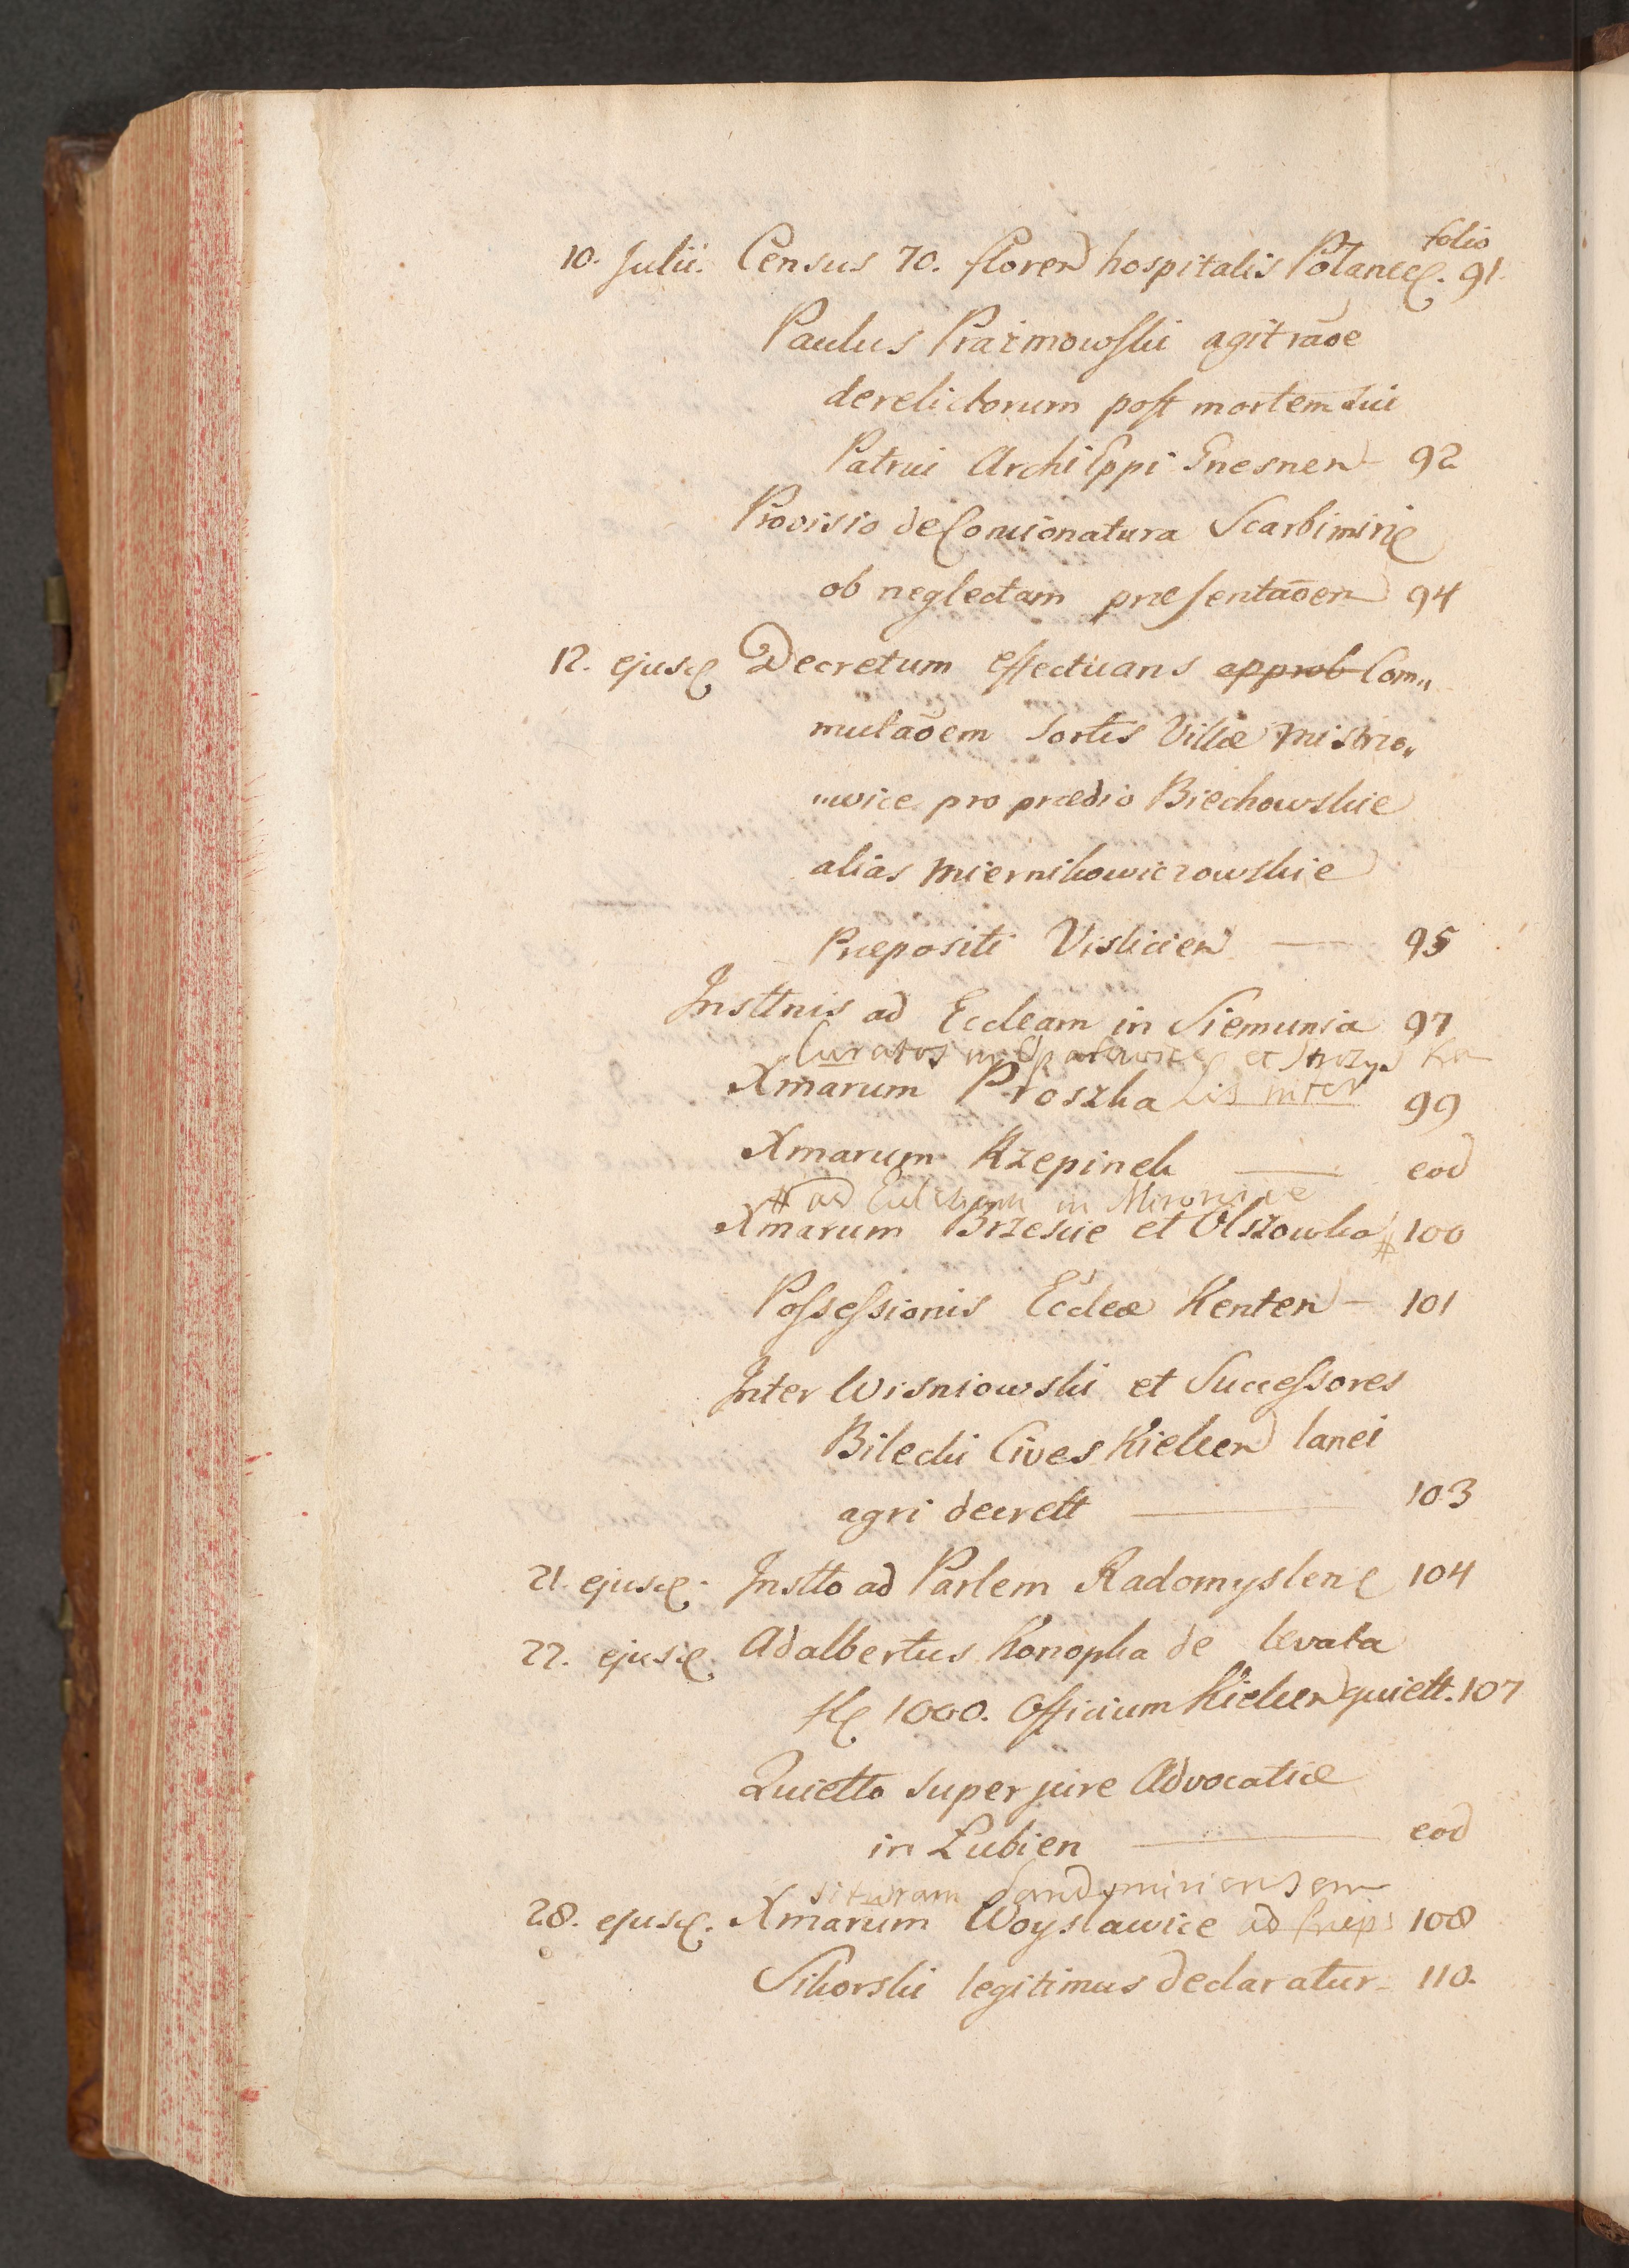 folio
10. Julii. Census 70. floren hospitalis Połanec. 91.
Paulus Prazmowski agit raõe
derelictorum post mortem sui
Patrui Archi Eppi Gnesnen 92
Provisio de Concionatura Scarbimirie
ob neglectam præsentaõem 94
12. ejusd Decretum effectuans approb Com„
mutaõem Sortis Villæ Mistrzo„
„wice pro prædio Biechowskie
alias Miernikowiczowskie
Præpositi Visliciem — 95
Insttnis ad Eccleam in Siemunia 97
Curatos in et
Xmarum Proszka Lis inter 99
Xmarum Rzepinek — eod
# ad Ecclesiam in Mironice
Xmarum Brzescie et Olszowka # 100
Possessionis Eccleæ Kenten — 101
Inter Wisniowski et Successores
Bilecki Cives Kielcen lanei
agri decrett — 103
21. ejusd. Instto ad Parlem Radomyslen 104
22. ejusd. Adalbertus Konopka de levata
fl 1000. Officium Kielcen quiett. 107
Quietto super jure Advocatiæ
in Łubien — eod
situram Sandomiriensem
28. ejusd. Xmarum Woysławice ad Præpo 108
Sikorski legitimus declaratur 110.